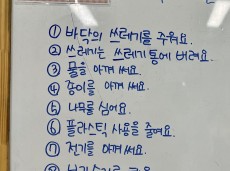 ① 바닥의 쓰레기를 주워요.
② 쓰레기는 쓰레기통에 버려요.
③ 물을 아껴 써요.
④ 종이를 아껴 써요.
⑤ 나무를 심어요.
⑥ 플라스틱 사용을 줄여요.
⑦ 전기를 아껴 써요.
⑧